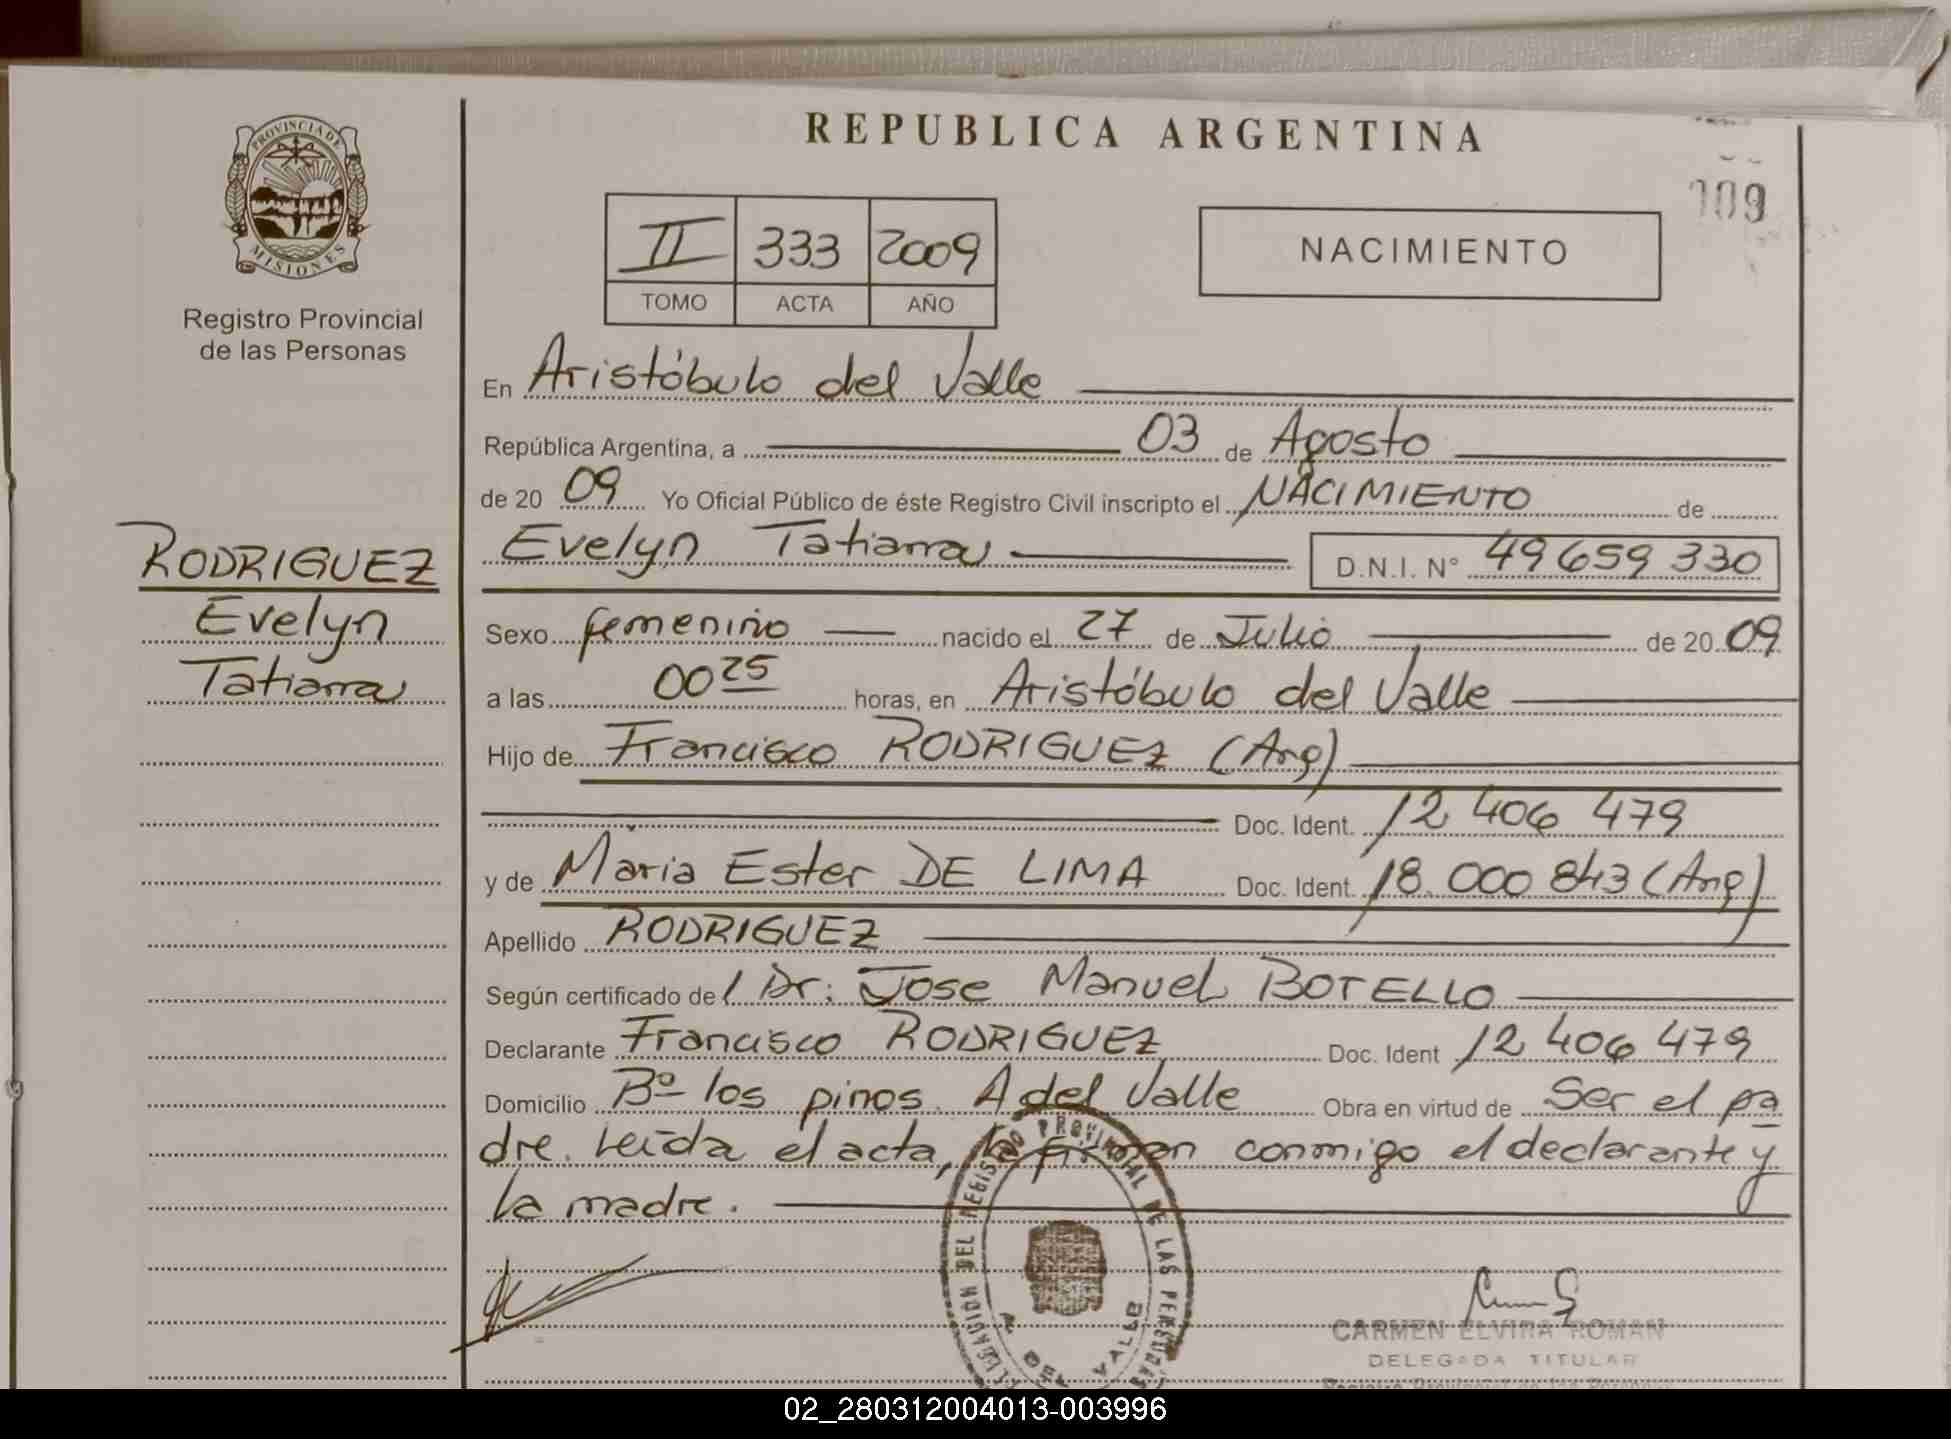 REPUBLICA ARGENTINA
109
PROVINCIA DE
MISIONES
Registro Provincial
de las Personas
II 333 2009
TOMO ACTA AÑO
NACIMIENTO
En Aristóbulo del Valle
República Argentina, a 03 de Agosto
de 20 09 Yo Oficial Público de éste Registro Civil inscripto el NACIMIENTO de
Evelyn Tatiana D.N.I. N° 49659330
RODRIGUEZ
Evelyn
Tatiana
Sexo femenino nacido el 27 de Julio de 20 09
a las 00 25 horas, en Aristóbulo del Valle
Hijo de Francisco RODRIGUEZ (Arg)
Doc. Ident. 12 406 479
y de Maria Ester DE LIMA Doc. Ident. 18.000 843 (Arg)
Apellido RODRIGUEZ
Según certificado de Dr: Jose Manuel BOTELLO
Declarante Francisco RODRIGUEZ Doc. Ident 12 406 479
Domicilio Bº los pinos. A del Valle Obra en virtud de Ser el pa
dre. Leída el acta, la firman conmigo el declarante y
la madre.
DELEGACION DEL REGISTRO PROVINCIAL DE LAS PERSONAS
A. DEL VALLE
CARMEN ELVIRA ROMAN
DELEGADA TITULAR
Registro Provincial de las Personas
02_280312004013-003996